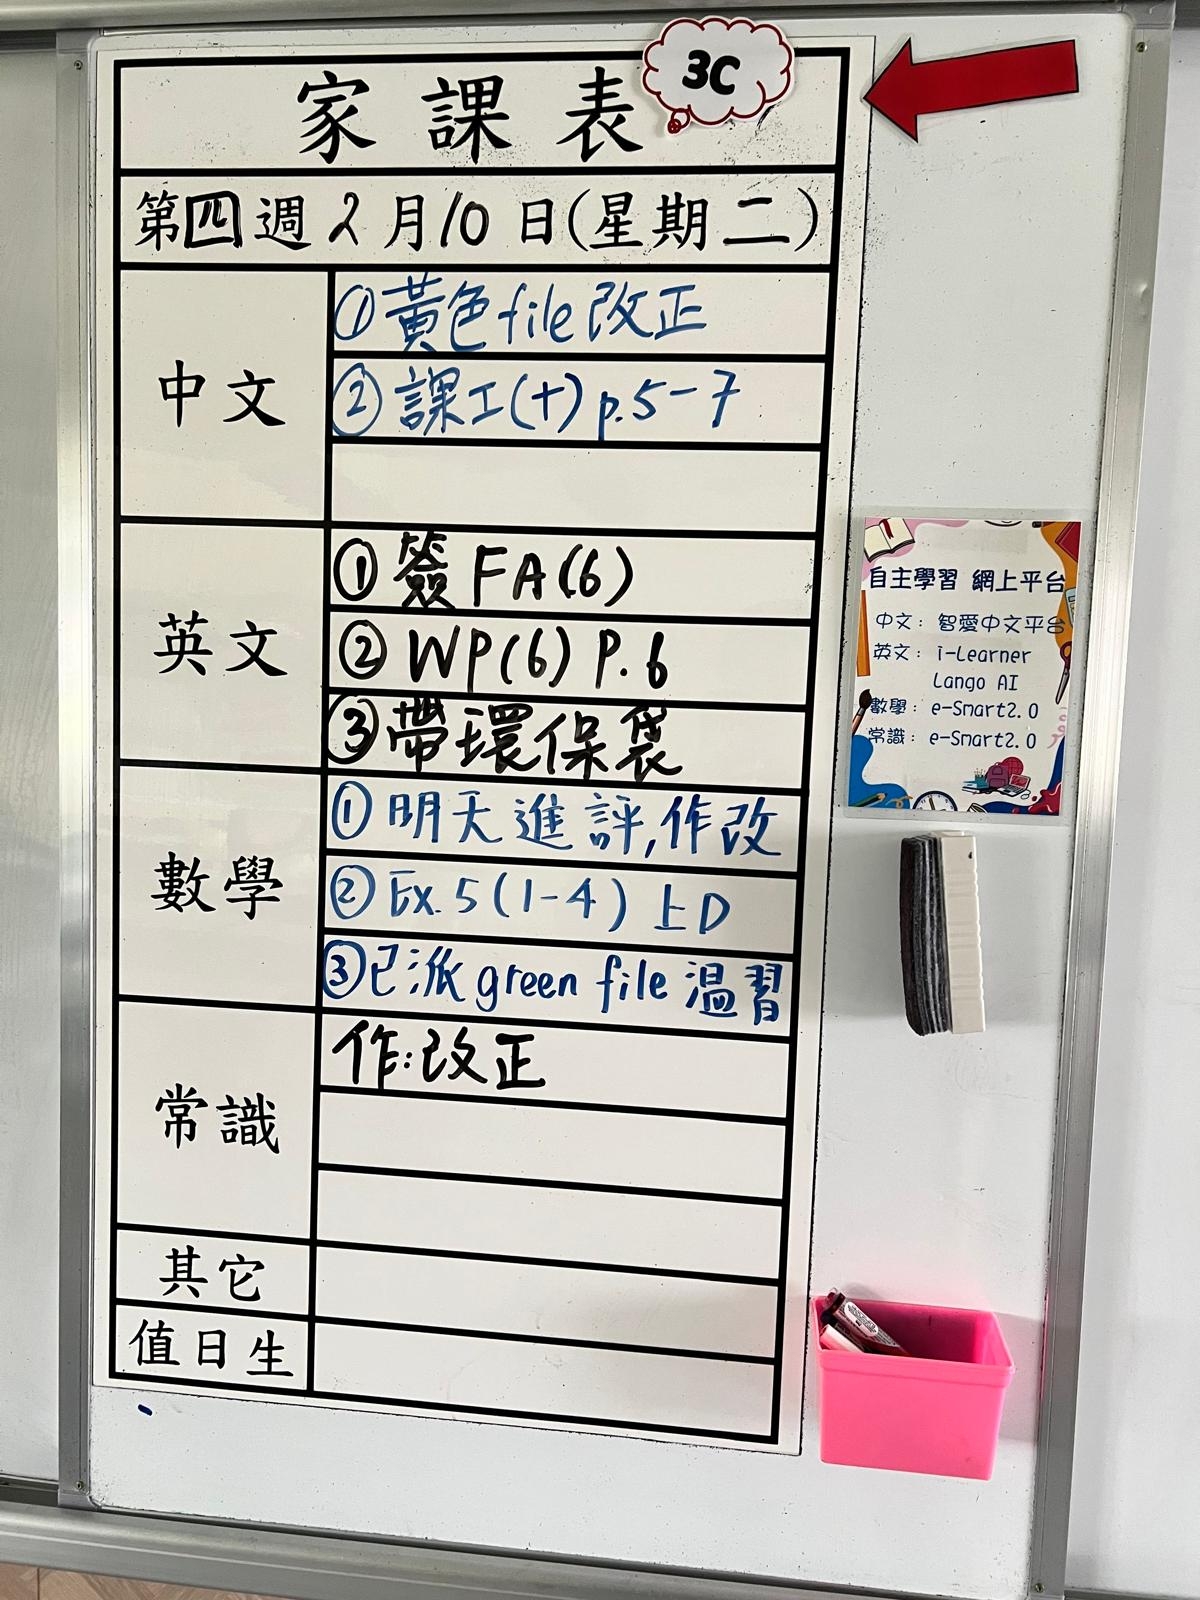 家課表
3C
第四週2月10日(星期二)
中文
①黃色file改正
②課工(十)p.5-7
英文
①簽FA(6)
②WP(6) P.6
③帶環保袋
數學
①明天進評,作改
②Ex.5(1-4)上D
③已派green file溫習
常識
作:改正
其它
值日生
自主學習 網上平台
中文：智愛中文平台
英文：i-Learner
Lango AI
數學：e-Smart2.0
常識：e-Smart2.0